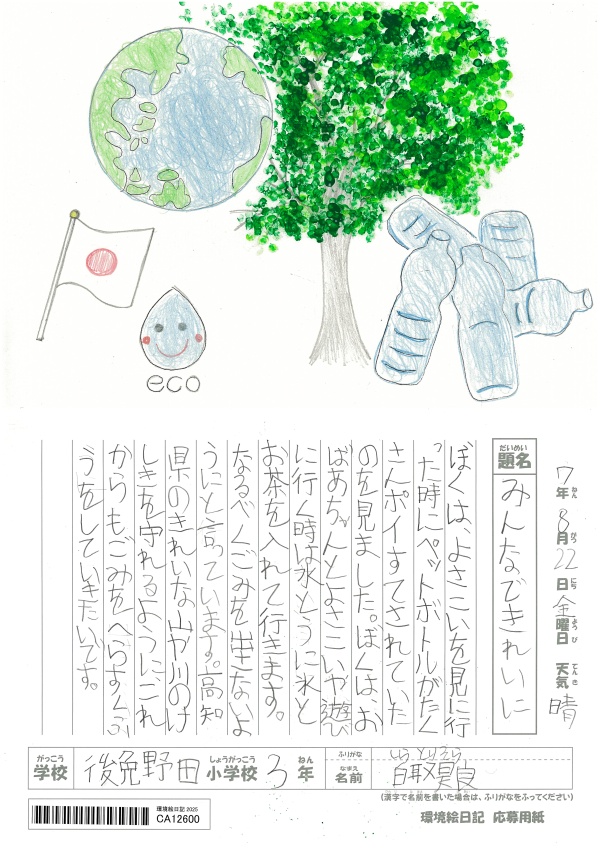 eco
7年8月22日金曜日 天気 晴
ねん がつ にち ようび てんき
だいめい
題名 みんなできれいに
ぼくは、よさこいを見に行
った時にペットボトルがたく
さんポイすてされていた
のを見ました。ぼくは、お
ばあちゃんとよさこいや遊び
に行く時は水とうに氷と
お茶を入れて行きます。
なるべくごみを出さないよ
うにと言っています。高知
県のきれいな山や川のけ
しきを守れるように、これ
からもごみをへらすくふ
うをしていきたいです。
がっこう しょうがっこう ねん
学校 後免野田 小学校 3 年
ふりがな
なまえ
名前
(漢字で名前を書いた場合は、ふりがなをふってください)
環境絵日記 2025
CA12600
環境絵日記 応募用紙